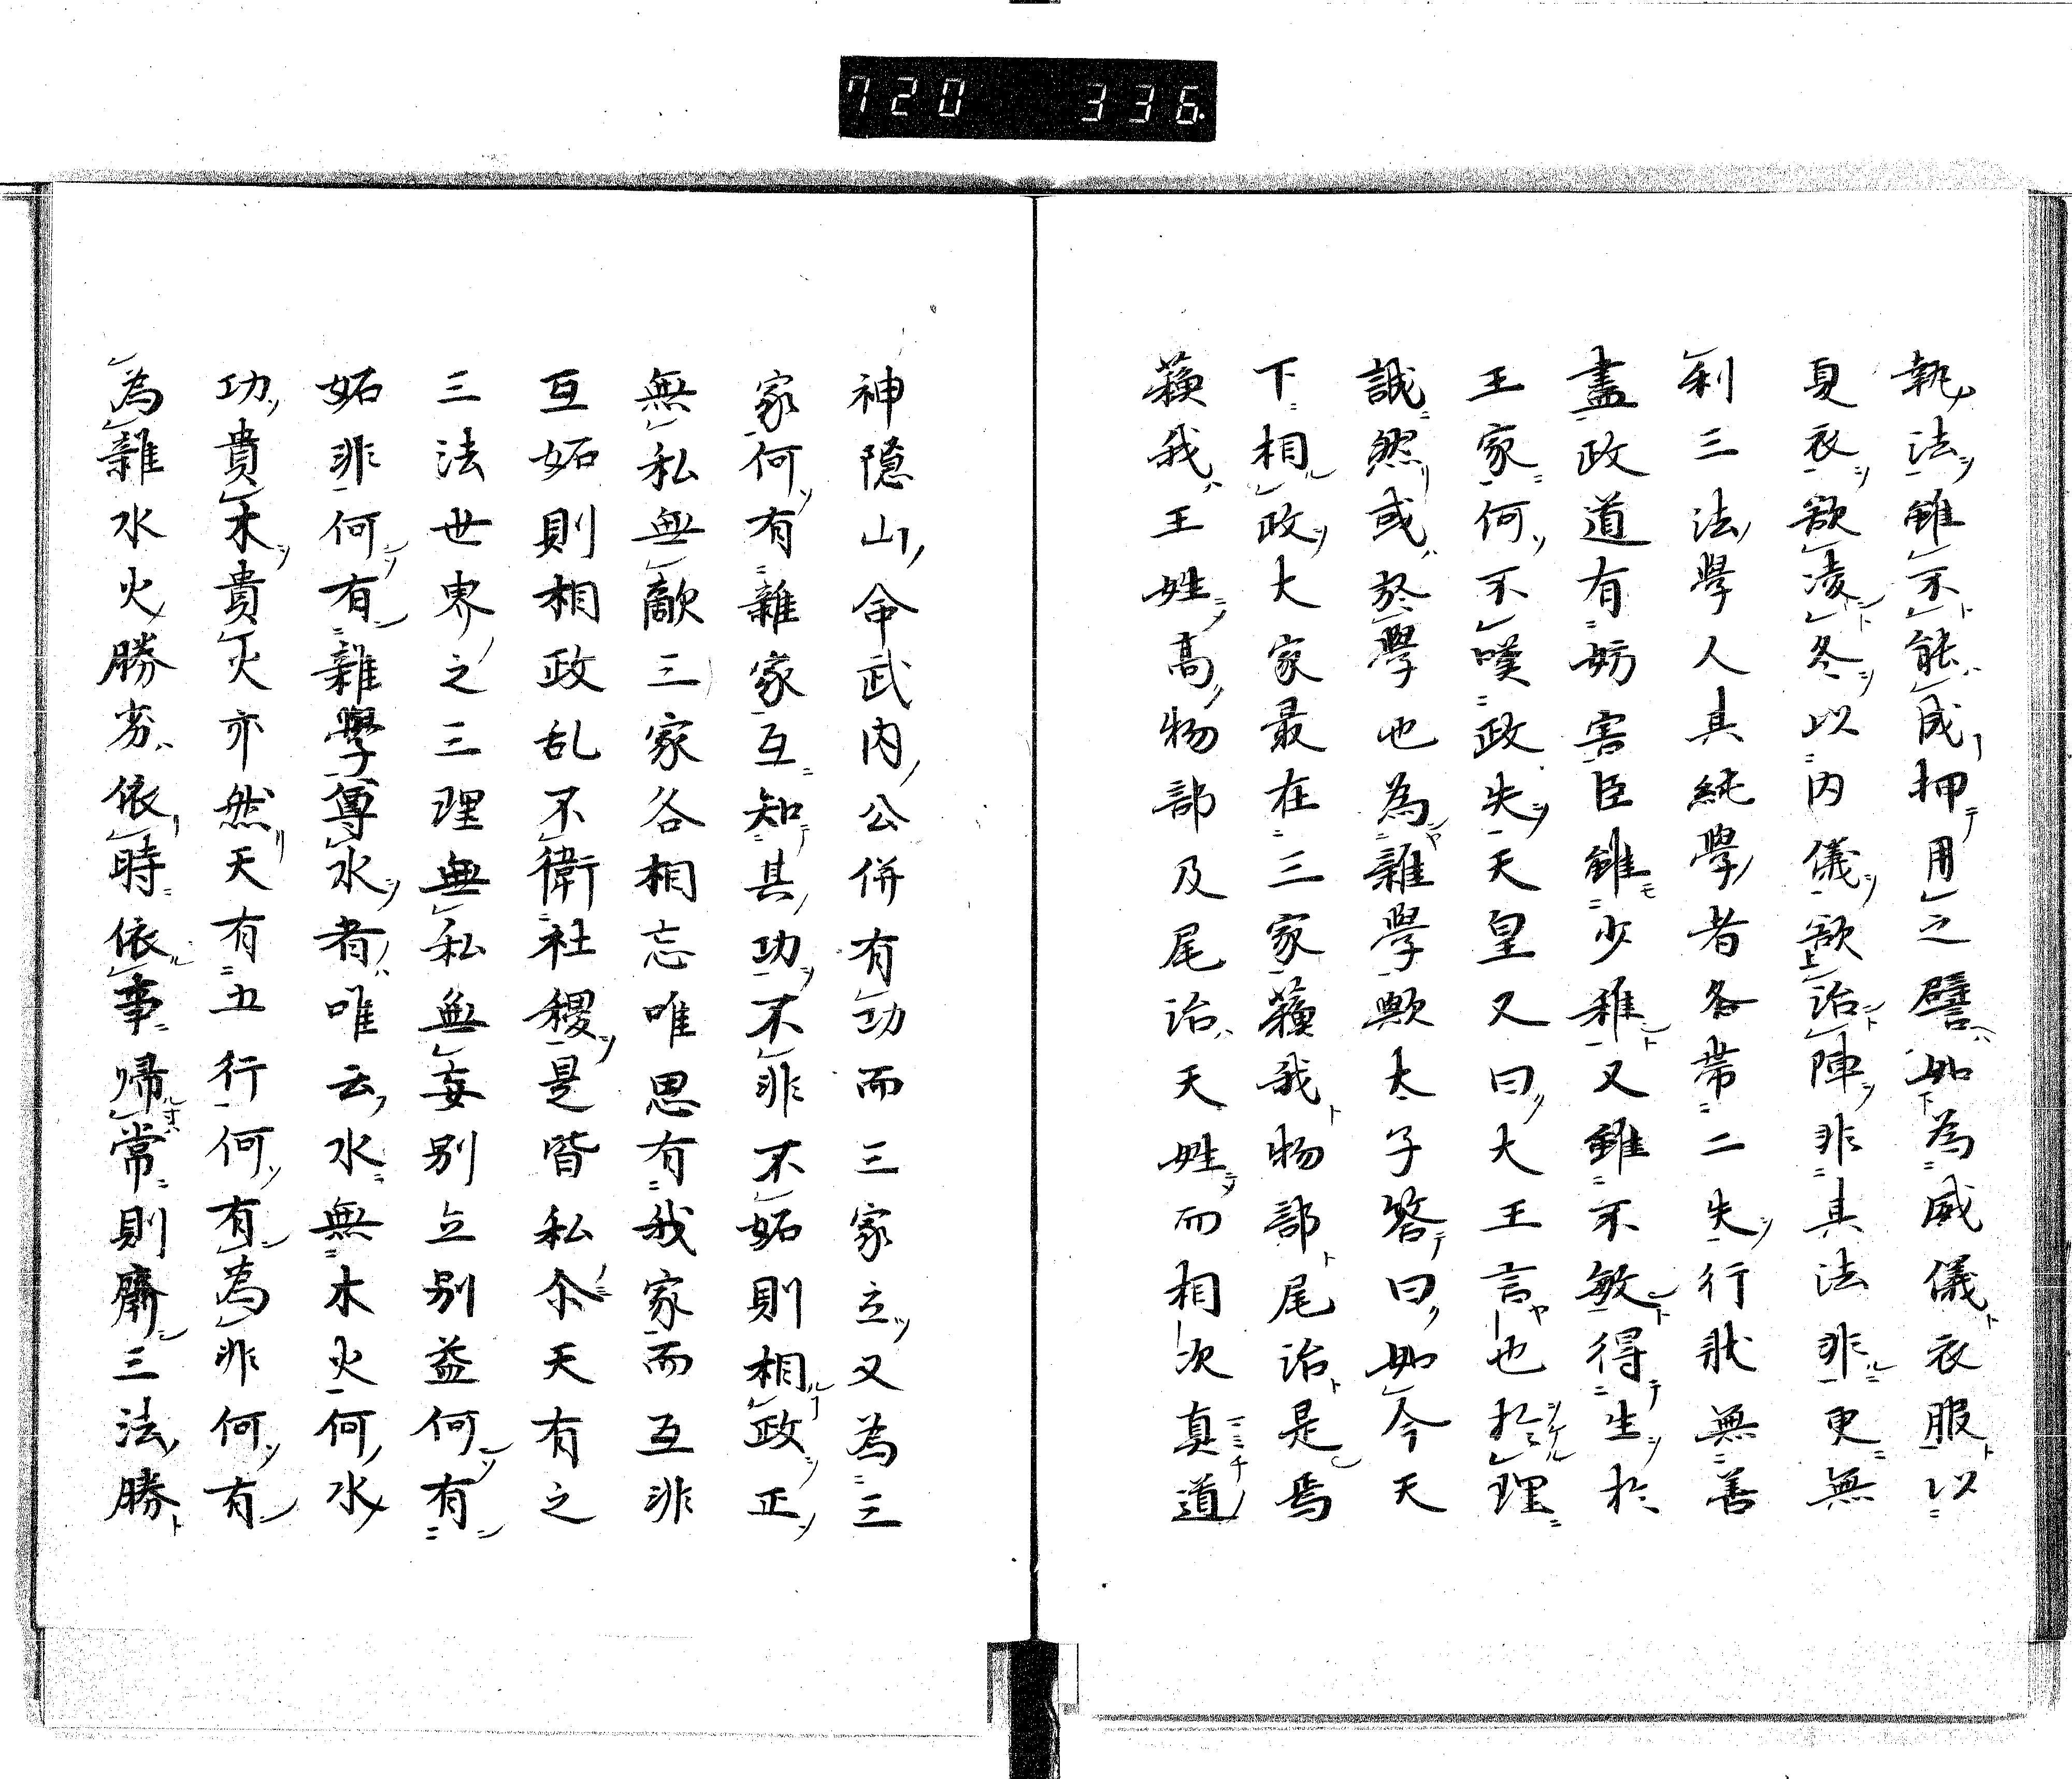 720 336
執法雖不能成押用之譬如為威儀衣服以
夏衣欲凌冬以内儀欲治陣非其法非更無
利三法學人具純學者各帯二失行狀無善
盡政道有妨害臣雖少稚又雖不敏得生於
王家何不嘆政失天皇又曰大王言也於理
誠然或於學也為雜學歟太子答曰如今天
下相政大家最在三家蘓我物部尾治是焉
蘓我王姓高物部及尾治天姓而相次真道
神隠山命武内公併有功而三家立又為三
家何有雜家互知其功不非不妬則相政正
無私無敵三家各相忘唯思有我家而互非
互妬則相政乱不衛社稷是皆私尒天有之
三法世界之三理無私無妄別立別益何有
妬非何有雜學尊水者唯云水無木火何水
功貴木貴火亦然天有五行何有為非何有
為雜水火勝劣依時依事帰常則齊三法勝